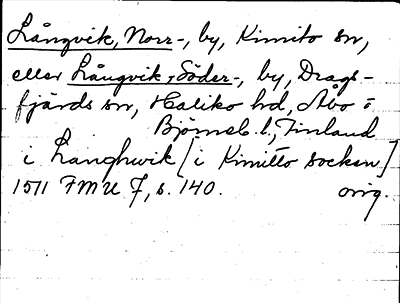 Långvik, Norr-, by, Kimito sn,
eller Långvik, Söder-, by, Drags-
fjärds sn, Haliko hd, Åbo o.
Björneb. l., Finland
i Langhwik [i Kimitto socken]
1511 FMU 7, s. 140. orig.